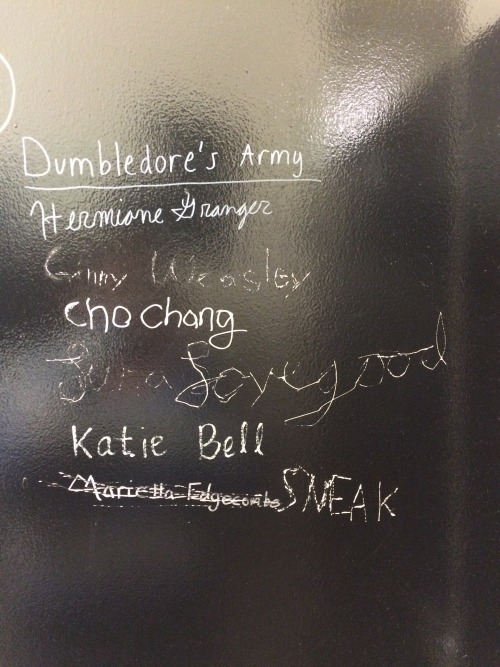 Dumbledore's Army
Hermione Granger
Ginny Weasley
Cho Chang
Luna Lovegood
Katie Bell
Marietta Edgecombe SNEAK